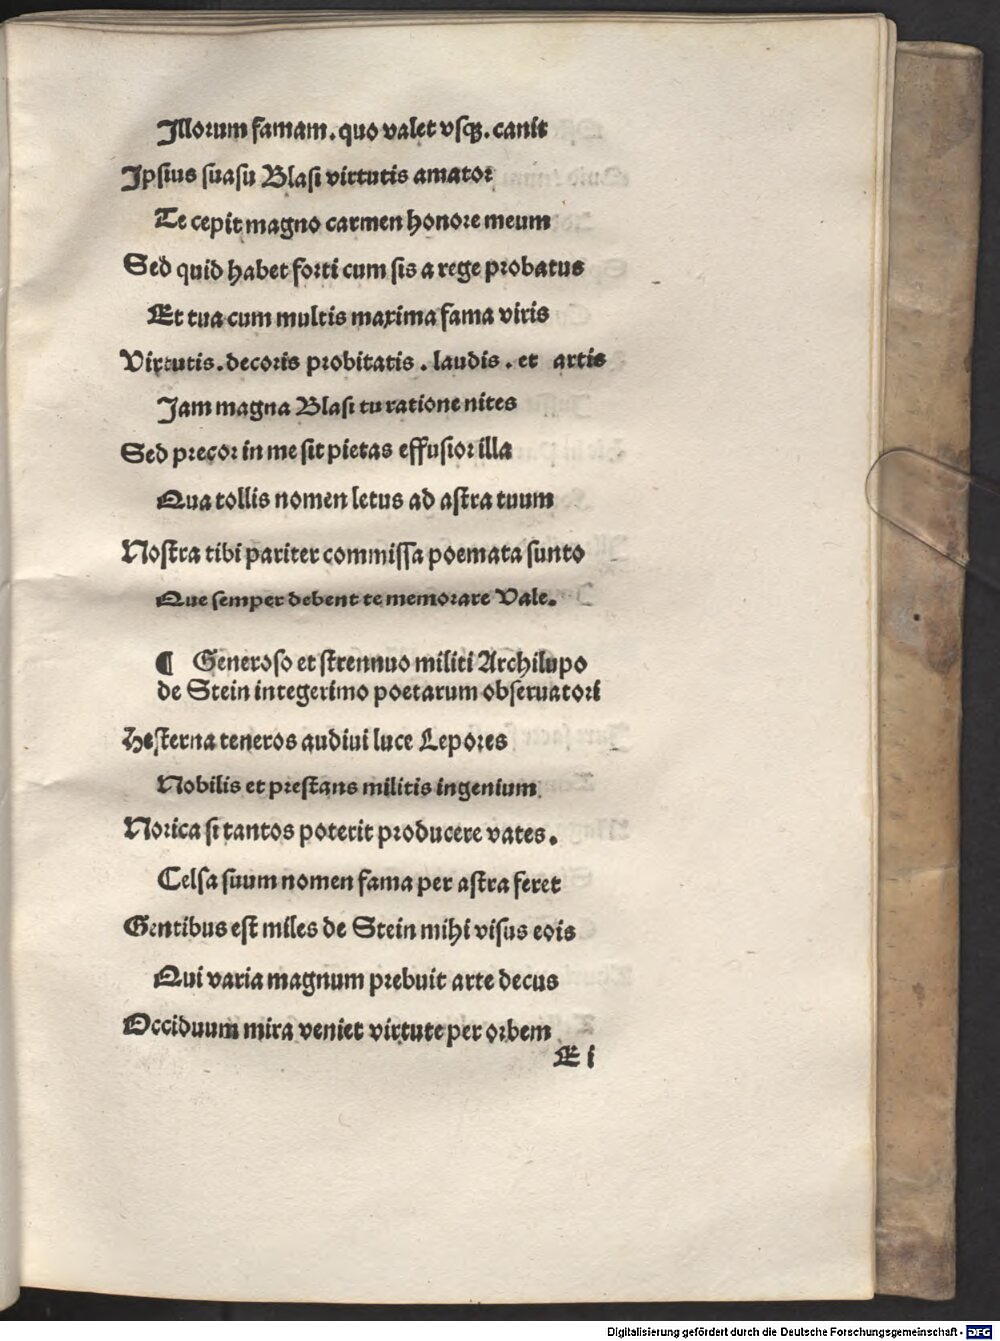 Illorum famam. quo valet vsqꝫ. canit
Ipsius suasu Blasi virtutis amator
Te cepit magno carmen honore meum
Sed quid habet forti cum sis a rege probatus
Et tua cum multis maxima fama viris
Virtutis. decoris probitatis. laudis. et artis
Jam magna Blasi tu ratione nites
Sed precor in me sit pietas effusior illa
Qua tollis nomen letus ad astra tuum
Nostra tibi pariter commissa poemata sunto
Que semper debent te memorare Vale.
¶ Generoso et strennuo militi Archilupo
de Stein integerimo poetarum obseruatori
Hesterna teneros audiui luce Lepores
Nobilis et prestans militis ingenium
Norica si tantos poterit producere vates.
Celsa suum nomen fama per astra feret
Gentibus est miles de Stein mihi visus eois
Qui varia magnum prebuit arte decus
Occiduum mira veniet virtute per orbem
E i
Digitalisierung gefördert durch die Deutsche Forschungsgemeinschaft - DFG